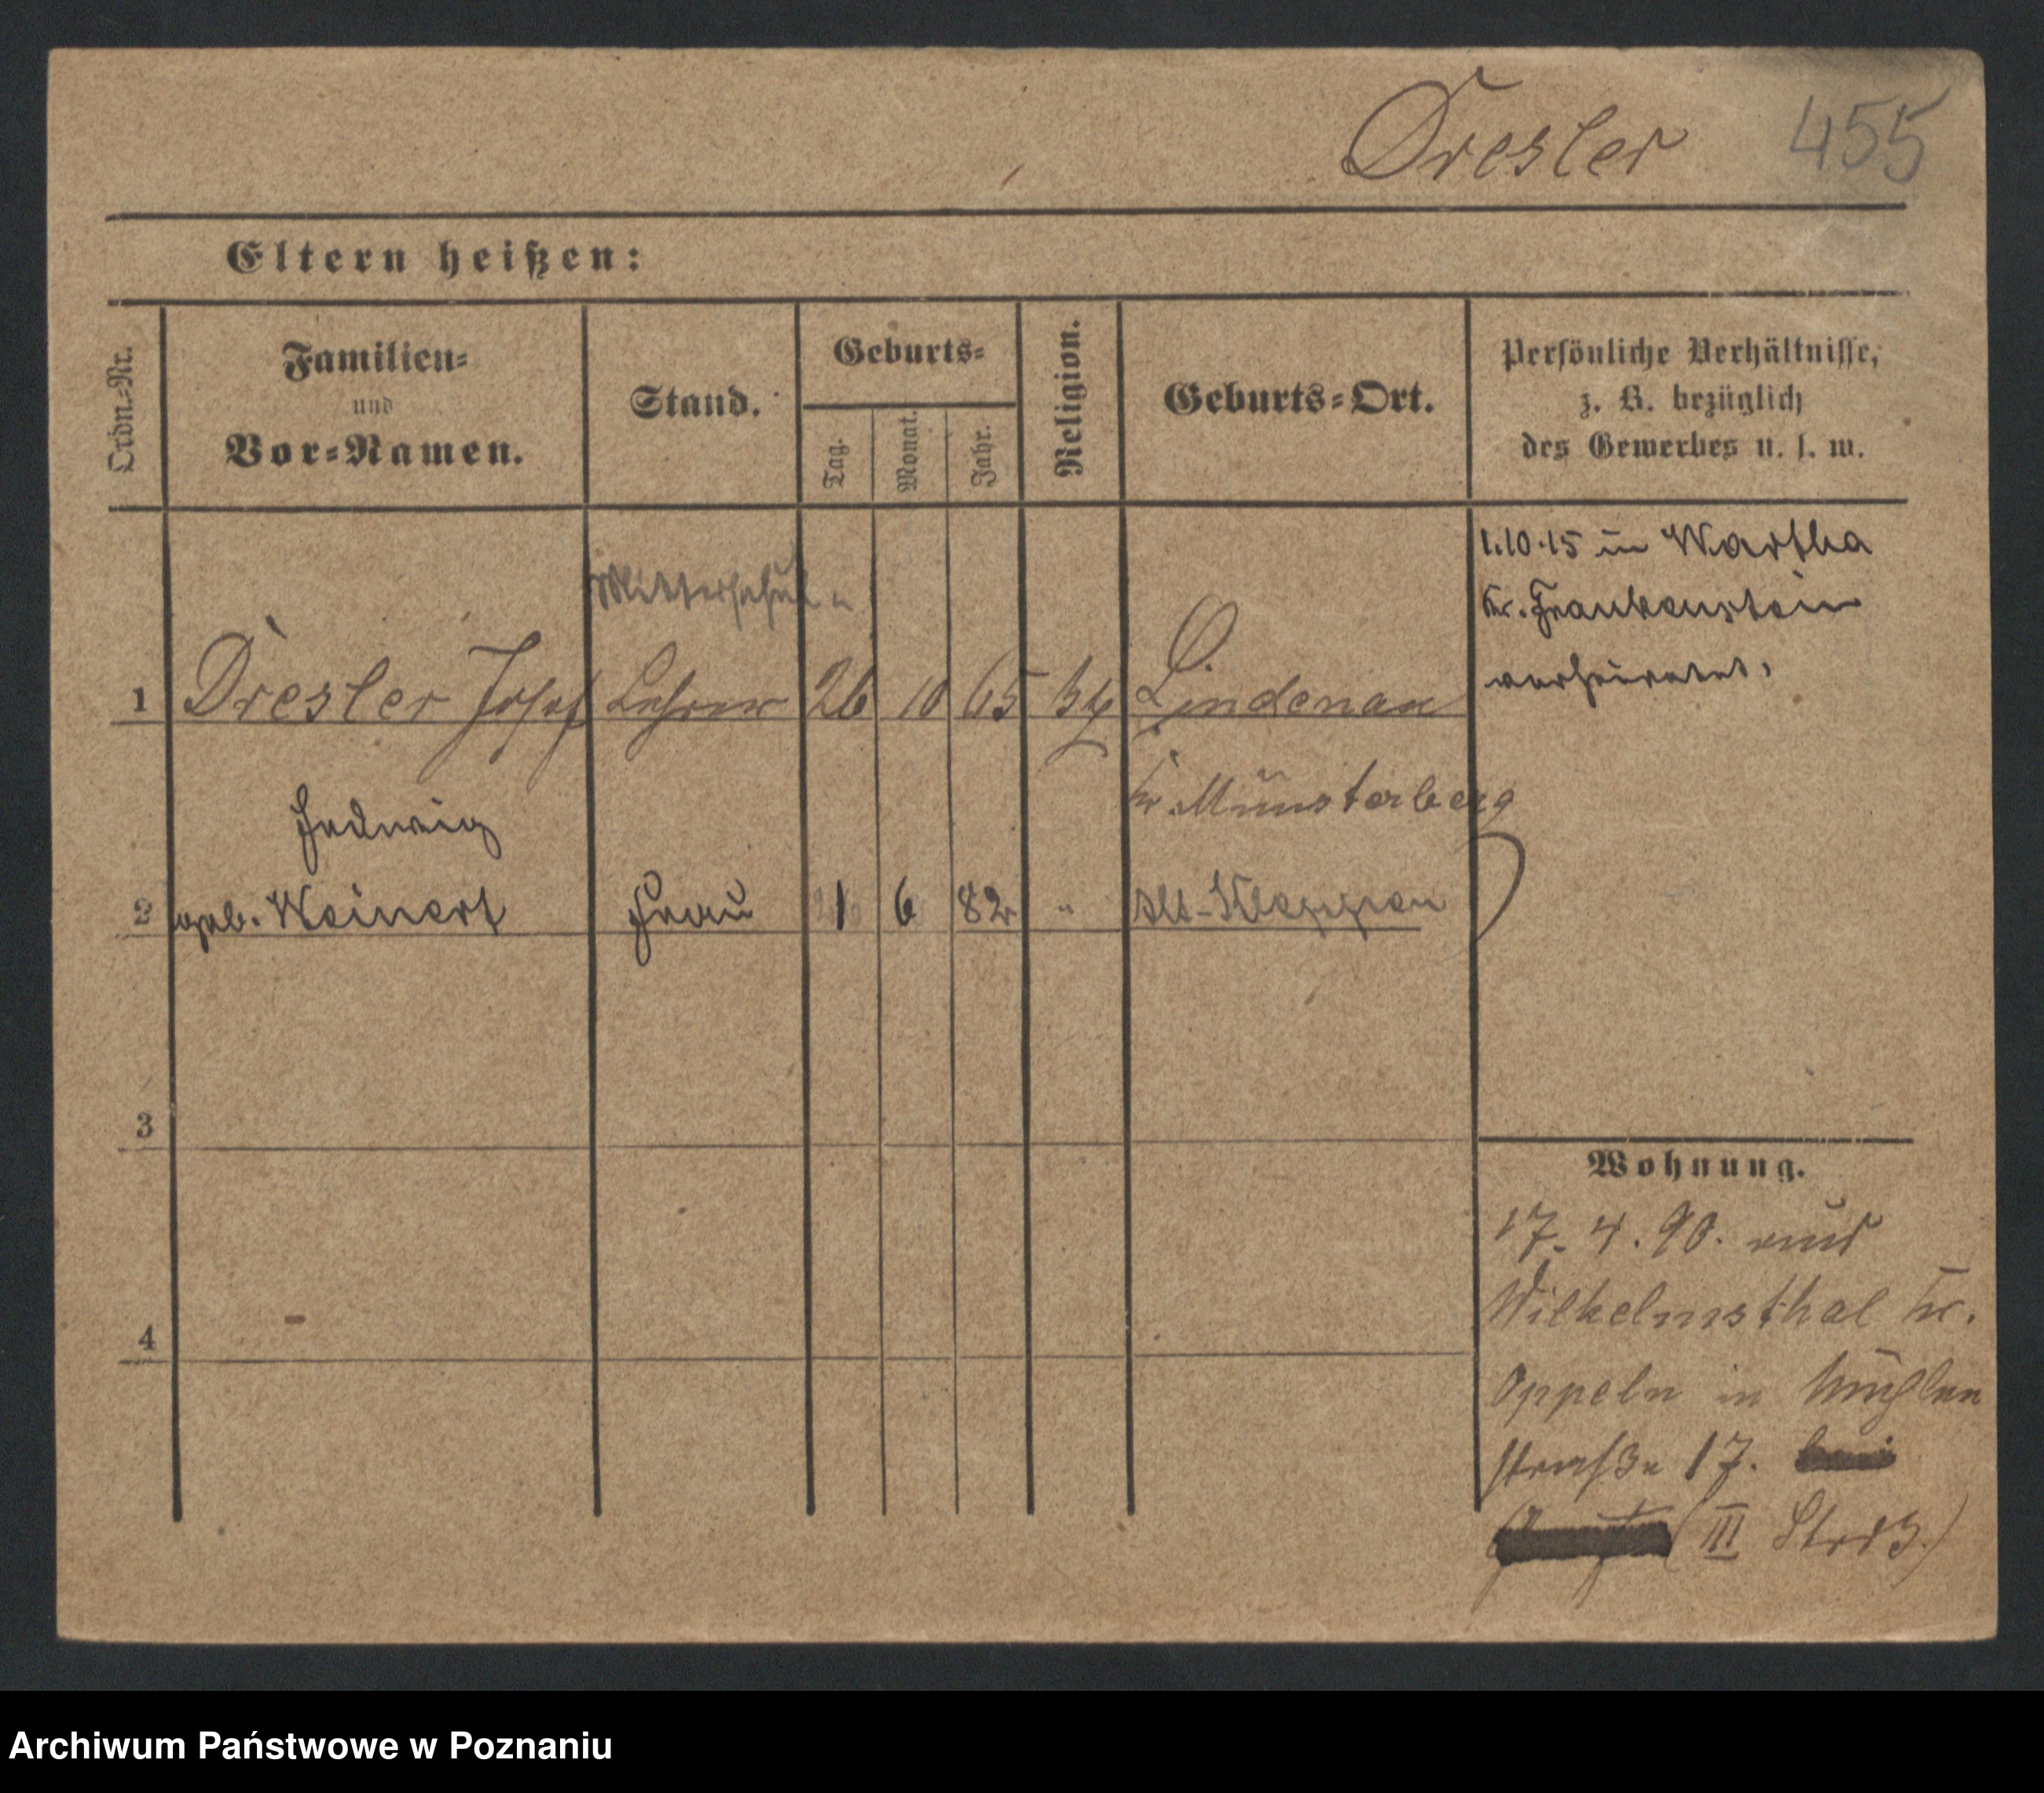 Dresler 455
Eltern heißen:
Ordn.-Nr.
Familien-
und
Vor-Namen.
Stand.
Geburts-
Tag.
Monat.
Jahr.
Religion.
Geburts-Ort.
Persönliche Verhältnisse,
z. B. bezüglich
des Gewerbes u. s. w.
1.10.15 in Wartha
Kr. Frankenstein
verheiratet.
Mittelschul
1 Dresler Josef Lehrer 26 10 65 kth Lindenau
Kr Münsterberg
Hedwig
2 geb. Weinert Frau 1 6 82 " Alt-
3
4
Wohnung.
17. 4. 90. aus
Wilhelmsthal Kr.
Oppeln in Mühlen
straße 17.
(III
Archiwum Państwowe w Poznaniu